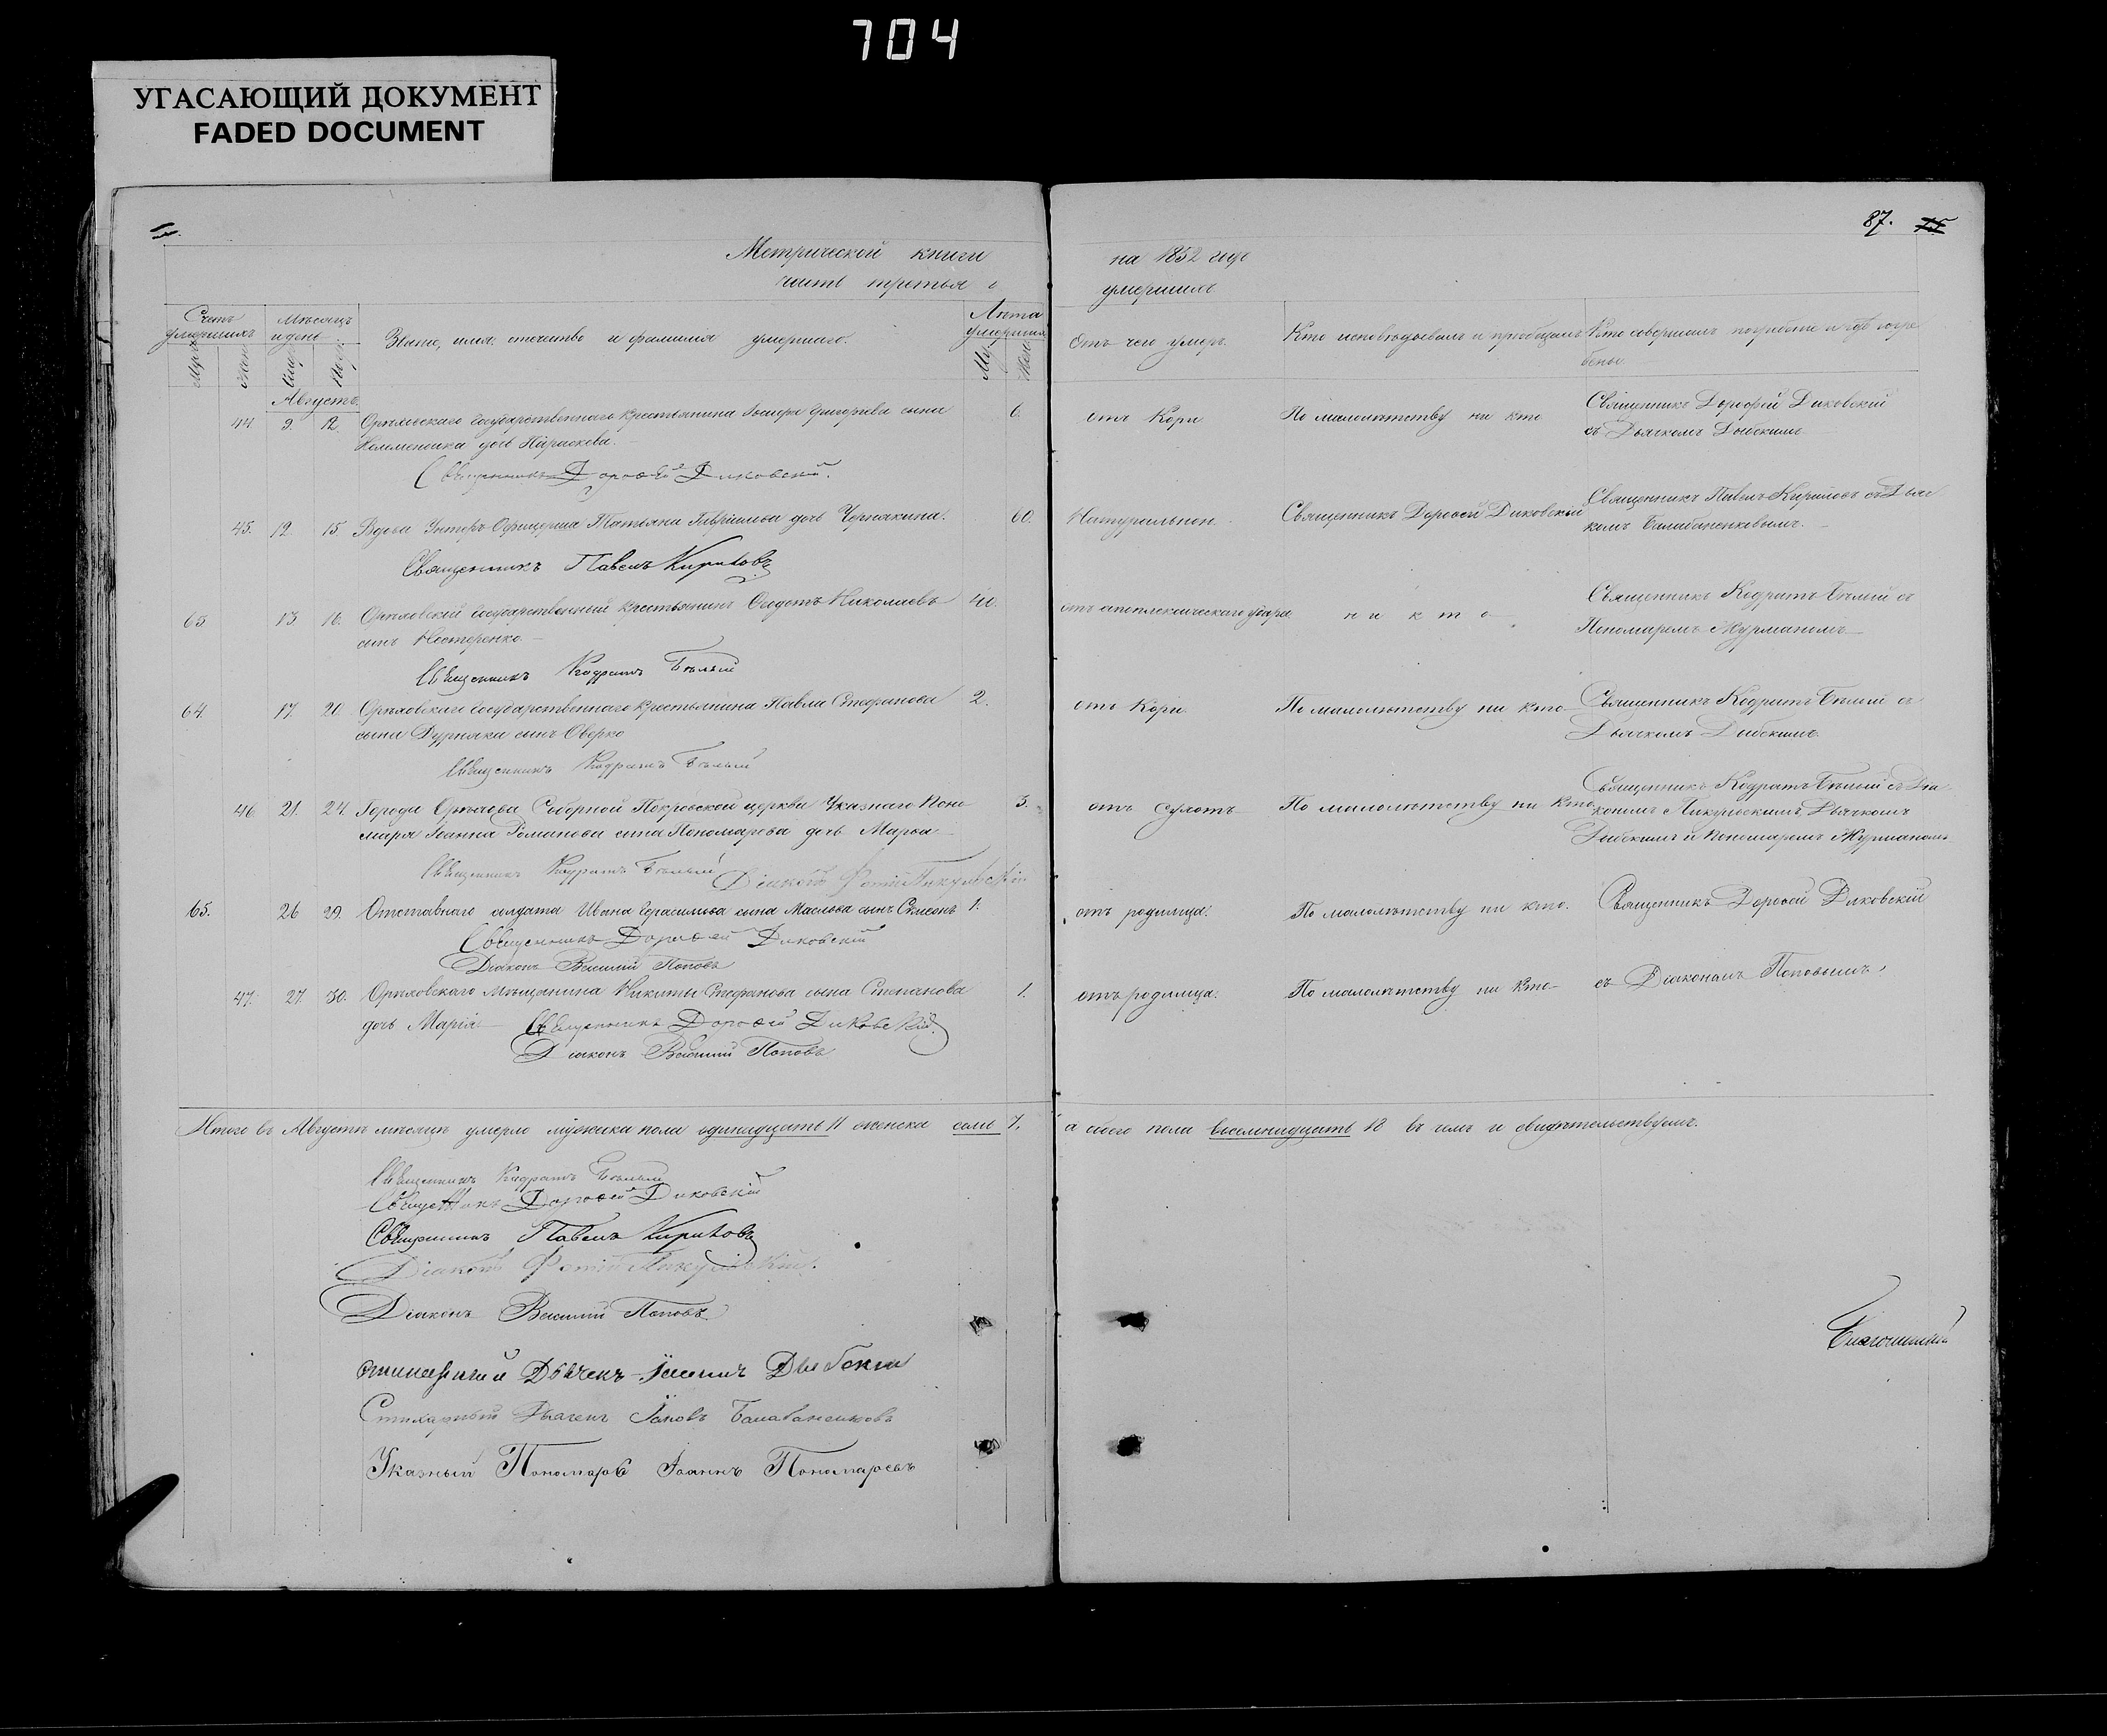 704
УГАСАЮЩИЙ ДОКУМЕНТ
FADED DOCUMENT
87.
Метрической книги на 1852 годъ
часть третья о умершихъ
Счетъ умершихъ
Мѣсяцъ и день
Званіе, имя, отчество и фамилія умершаго.
Лѣта умершихъ
Отъ чего умеръ.
Кто исповѣдывалъ и пріобщалъ
Кто совершалъ погребеніе и гдѣ погребены
Муж. Жен. Смер. Погр. Му. Жен.
Августъ.
44. 9. 12. Орѣховскаго государственнаго крестьянина Іосифа Григорьева сына 6. отъ Кори По малолѣтству ни кто Священникъ Дорофей Диковскій
дочь Параскева. съ Дьячкомъ Дыбскимъ
Священникъ Дорофей Диковскій.
45. 12. 15. Вдова Унтеръ-Офицерша Татьяна Гавріилова дочь Чернякина. 60. Натуральной Священникъ Дорофей Диковскій Священникъ Павелъ Кириловъ съ Дьяч
комъ Балабаненковымъ.
Священникъ Павелъ Кириловъ
63. 13 16. Орѣховскій государственный крестьянинъ Федотъ Николаевъ 40. отъ апоплексическаго удара никто Священникъ Кодратъ Бѣлый съ
сынъ Нестеренко Пономаремъ Журманомъ
Священникъ Кодратъ Бѣлый
64. 17. 20. Орѣховскаго государственнаго крестьянина Павла Стефанова 2. отъ Кори По малолѣтству ни кто Священникъ Кодратъ Бѣлый съ
сына Дурняка сынъ Оверко Дьячкомъ Дыбскимъ
Священникъ Кодратъ Бѣлый
46. 21. 24. Города Орѣхова Соборной Покровской церкви Указнаго Поно 3. отъ сухотъ По малолѣтству ни кто Священникъ Кодратъ Бѣлый съ Діа
маря Іоанна Романова сына Пономарева дочь Марѳа кономъ Пикульскимъ, Дьячкомъ
Дыбскимъ и Пономаремъ Журманомъ
Священникъ Кодратъ Бѣлый Діаконъ Фотій Пикульскій
65. 26 29. Отставнаго солдата Ивана Герасимова сына Маслова сынъ Симеонъ 1. отъ родимца. По малолѣтству ни кто. Священникъ Дорофей Диковскій
Священникъ Дорофей Диковскій
Діаконъ Василий Поповъ
47. 27. 30. Орѣховскаго мѣщанина Никиты Стефанова сына Степанова 1. отъ родимца. По малолѣтству ни кто съ Діакономъ Поповымъ
дочь Марія Священникъ Дорофей Диковскій.
Діаконъ Василий Поповъ
Итого въ Августѣ мѣсяцѣ умерло мужеска пола одинадцать 11 женска семь 7. а обоего пола восемнадцать 18 въ чемъ и свидѣтельствуемъ.
Священникъ Кодратъ Бѣлый
Священникъ Дорофей Диковскій
Священникъ Павелъ Кириловъ
Діаконъ Фотій Пикульскій.
Діаконъ Василий Поповъ
Благочинный
Дьячекъ Дыбский
Стихарный Дьячекъ Іаковъ Балабаненковъ
Указный Пономарь Іоаннъ Пономаревъ